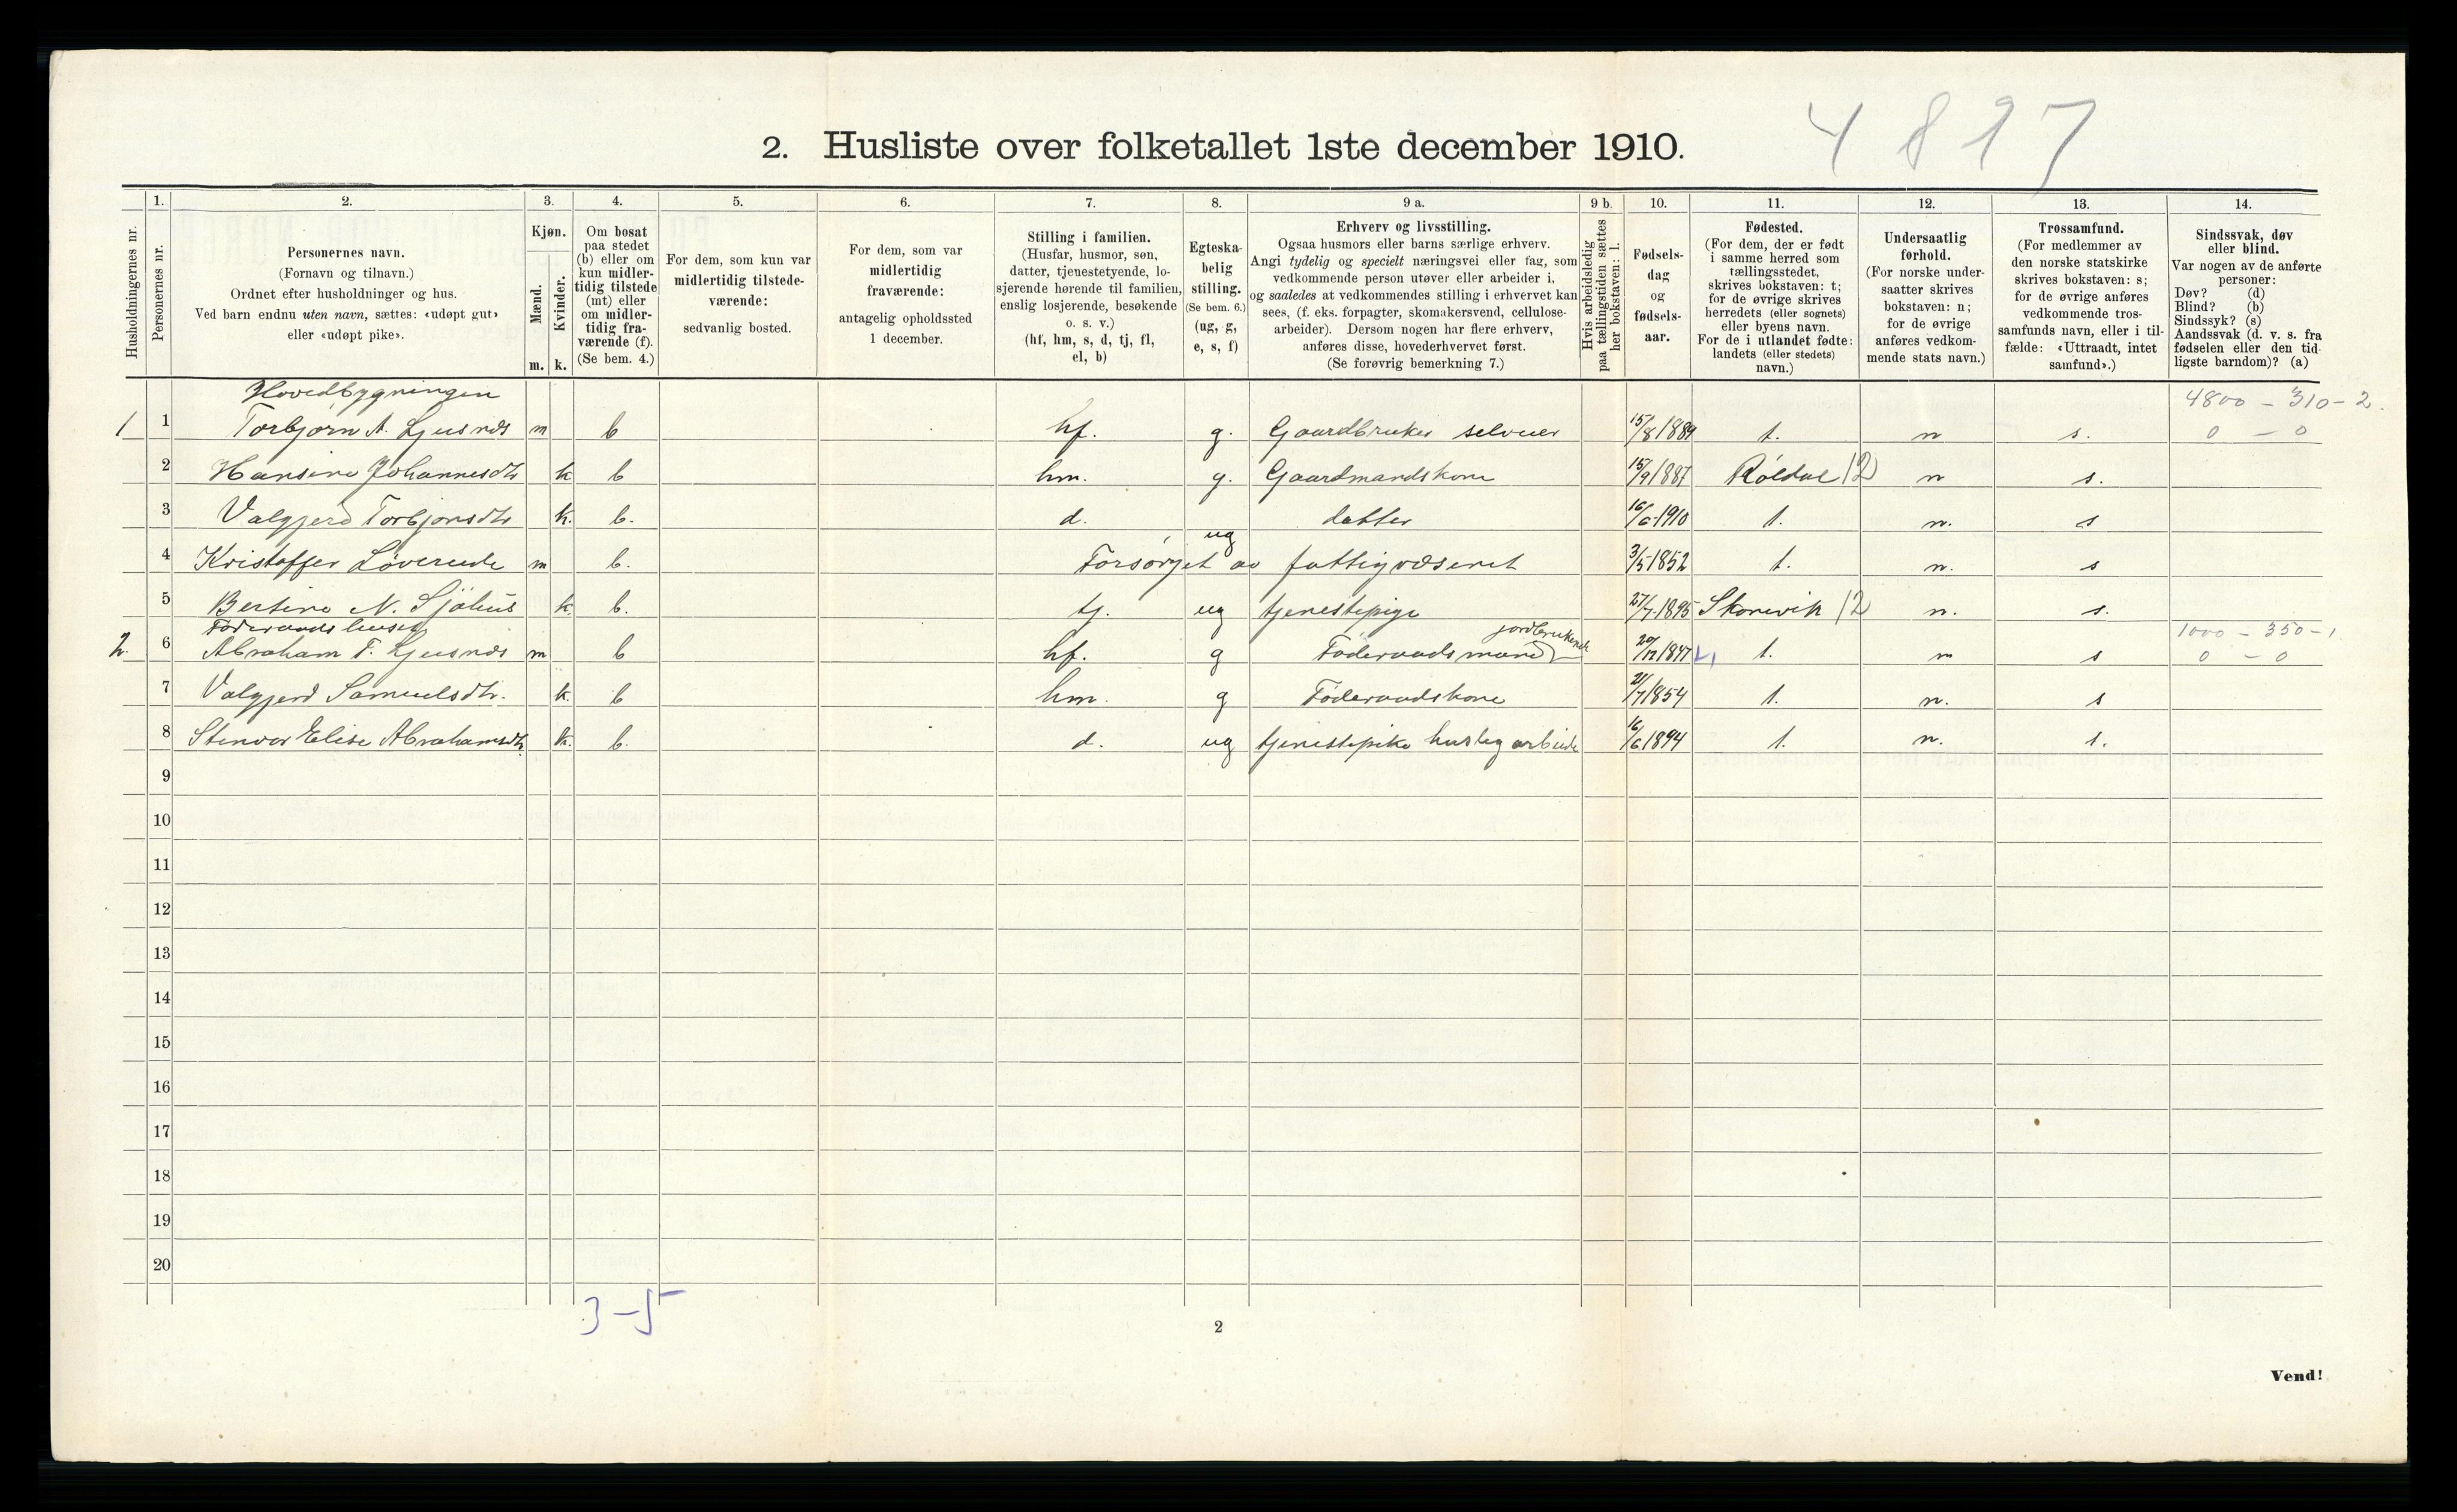 4897
2. Husliste over folketallet 1ste december 1910.
Husholdningernes nr.
1. Personernes nr.
2. Personernes navn.
(Fornavn og tilnavn.)
Ordnet efter husholdninger og hus.
Ved barn endnu uten navn, sættes: «udøpt gut»
eller «udøpt pike».
3. Kjøn.
Mænd. m.
Kvinder. k.
4. Om bosat
paa stedet
(b) eller om
kun midler-
tidig tilstede
(mt) eller
om midler-
tidig fra-
værende (f).
(Se bem. 4.)
5. For dem, som kun var
midlertidig tilstede-
værende:
sedvanlig bosted.
6. For dem, som var
midlertidig
fraværende:
antagelig opholdssted
1 december.
7. Stilling i familien.
(Husfar, husmor, søn,
datter, tjenestetyende, lo-
sjerende hørende til familien,
enslig losjerende, besøkende
o. s. v.)
(hf, hm, s, d, tj, fl,
el, b)
8. Egteska-
belig
stilling.
(Se bem. 6.)
(ug, g,
e, s, f)
9 a. Erhverv og livsstilling.
Ogsaa husmors eller barns særlige erhverv.
Angi tydelig og specielt næringsvei eller fag, som
vedkommende person utøver eller arbeider i,
og saaledes at vedkommendes stilling i erhvervet kan
sees, (f. eks. forpagter, skomakersvend, cellulose-
arbeider). Dersom nogen har flere erhverv,
anføres disse, hovederhvervet først.
(Se forøvrig bemerkning 7.)
9 b. Hvis arbeidsledig
paa tællingstiden sættes
her bokstaven: l.
10. Fødsels-
dag
og
fødsels-
aar.
11. Fødested.
(For dem, der er født
i samme herred som
tællingsstedet,
skrives bokstaven: t;
for de øvrige skrives
herredets (eller sognets)
eller byens navn.
For de i utlandet fødte:
landets (eller stedets)
navn.)
12. Undersaatlig
forhold.
(For norske under-
saatter skrives
bokstaven: n;
for de øvrige
anføres vedkom-
mende stats navn.)
13. Trossamfund.
(For medlemmer av
den norske statskirke
skrives bokstaven: s;
for de øvrige anføres
vedkommende tros-
samfunds navn, eller i til-
fælde: «Uttraadt, intet
samfund».)
14. Sindssvak, døv
eller blind.
Var nogen av de anførte
personer:
Døv? (d)
Blind? (b)
Sindssyk? (s)
Aandssvak (d. v. s. fra
fødselen eller den tid-
ligste barndom)? (a)
Hovedbygningen 4800 - 310 - 2.
1 1 Torbjørn A. Ljusnæs m b hf. g. Gaardbruker selveier 15/8 1889 t. n s. 0 - 0
2 Hansine Johannesdtr k b hm. g. Gaardmandskone 15/9 1887 Røldal 12 n s.
3 Valgjerd Torbjørnsdtr k. b. d. ug datter 16/6-1910 t. n. s
4 Kristoffer Løverude m b. Forsørget av fattigvæsenet 3/5-1852 t. n. s
5 Bertine N. Sjøhus k. b. tj. ug tjenestepige 27/7-1895 Skonevik 12 n. s.
Føderaadshuset jordbrukende 1000 - 350 - 1
2. 6 Abraham T. Ljusnæs m b hf. g Føderaadsmand 20/12 1847 t. n s 0 - 0
7 Valgjerd Samuelsdtr. k. b hm. g Føderaadskone 21/7 1854 t. n. s
8 Stenvor Elise Abrahamsdtr. k. b. d. ug tjenestepike huslig arbeide 16/6 1894 t. n. s.
9
10
11
12
13
14
15
16
17
18
19
20
3-5
2
Vend!